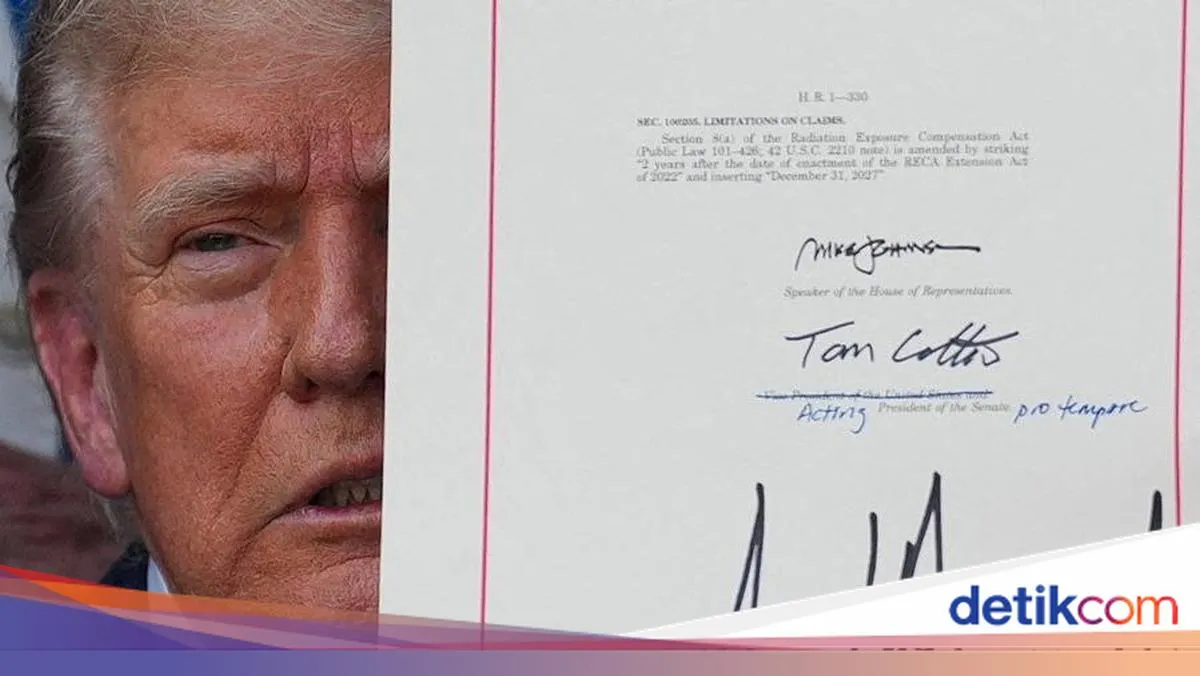 H. R. 1—330
SEC. 100205. LIMITATIONS ON CLAIMS.
Section 8(a) of the Radiation Exposure Compensation Act
(Public Law 101–426; 42 U.S.C. 2210 note) is amended by striking
“2 years after the date of enactment of the RECA Extension Act
of 2022” and inserting “December 31, 2027”.
Mike Johnson
Speaker of the House of Representatives.
Tom Cotton
Vice President of the United States and
Acting President of the Senate pro tempore
detikcom